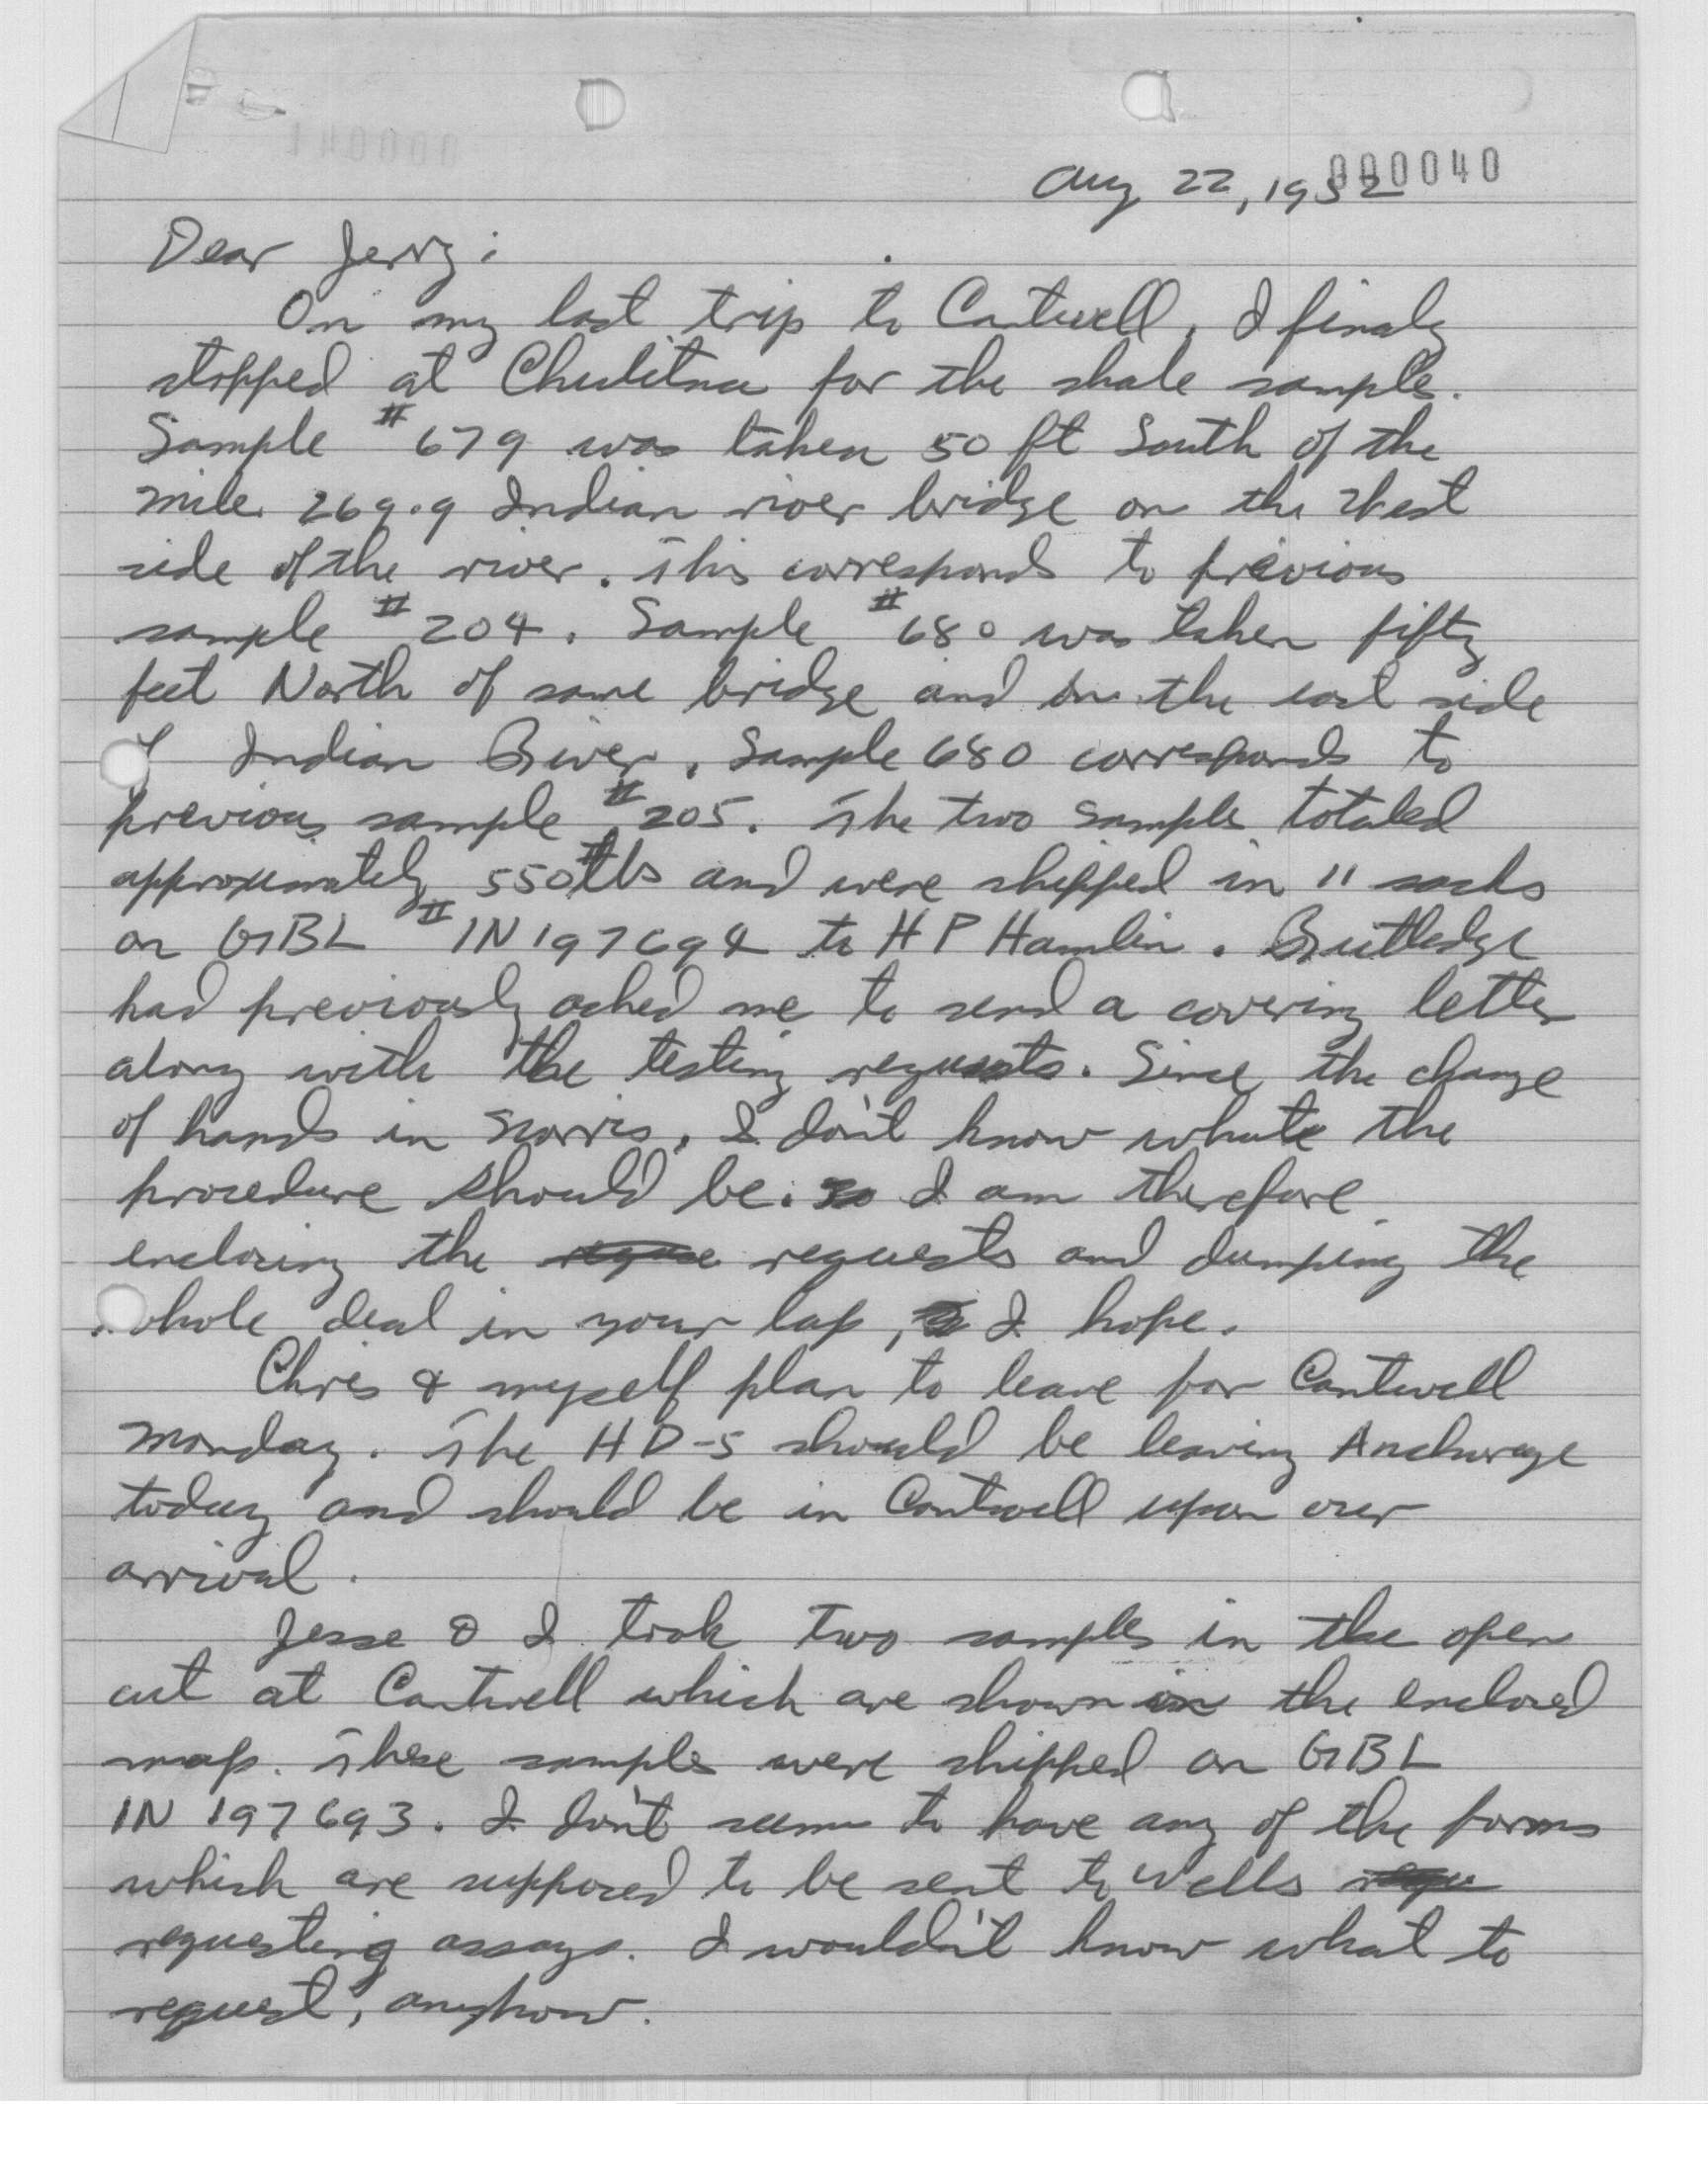 000040
Aug 22, 1952
Dear Jerry:
On my last trip to Cantwell, I finaly
stopped at Chulitna for the shale samples.
Sample #679 was taken 50 ft South of the
mile 269.9 Indian river bridge on the West
side of the river. This corresponds to previous
sample #204. Sample #680 was taken fifty
feet North of same bridge and on the east side
of Indian River. Sample 680 corresponds to
previous sample #205. The two samples totaled
approximately 550 lbs and were shipped in 11 sacks
on GBL #IN197694 to H P Hamlin. Rutledge
had previously asked me to send a covering letter
along with the testing requests. Since the change
of hands in Norris, I don't know what the
procedure should be. so I am therefore
enclosing the requests and dumping the
whole deal in your lap, I hope.
Chris & myself plan to leave for Cantwell
Monday. The HD-5 should be leaving Anchorage
today and should be in Cantwell upon our
arrival.
Jesse & I took two samples in the open
cut at Cantwell which are shown in the enclosed
map. These samples were shipped on GBL
IN 197693. I don't seem to have any of the forms
which are supposed to be sent to Wells
requesting assays. I wouldn't know what to
request, anyhow.